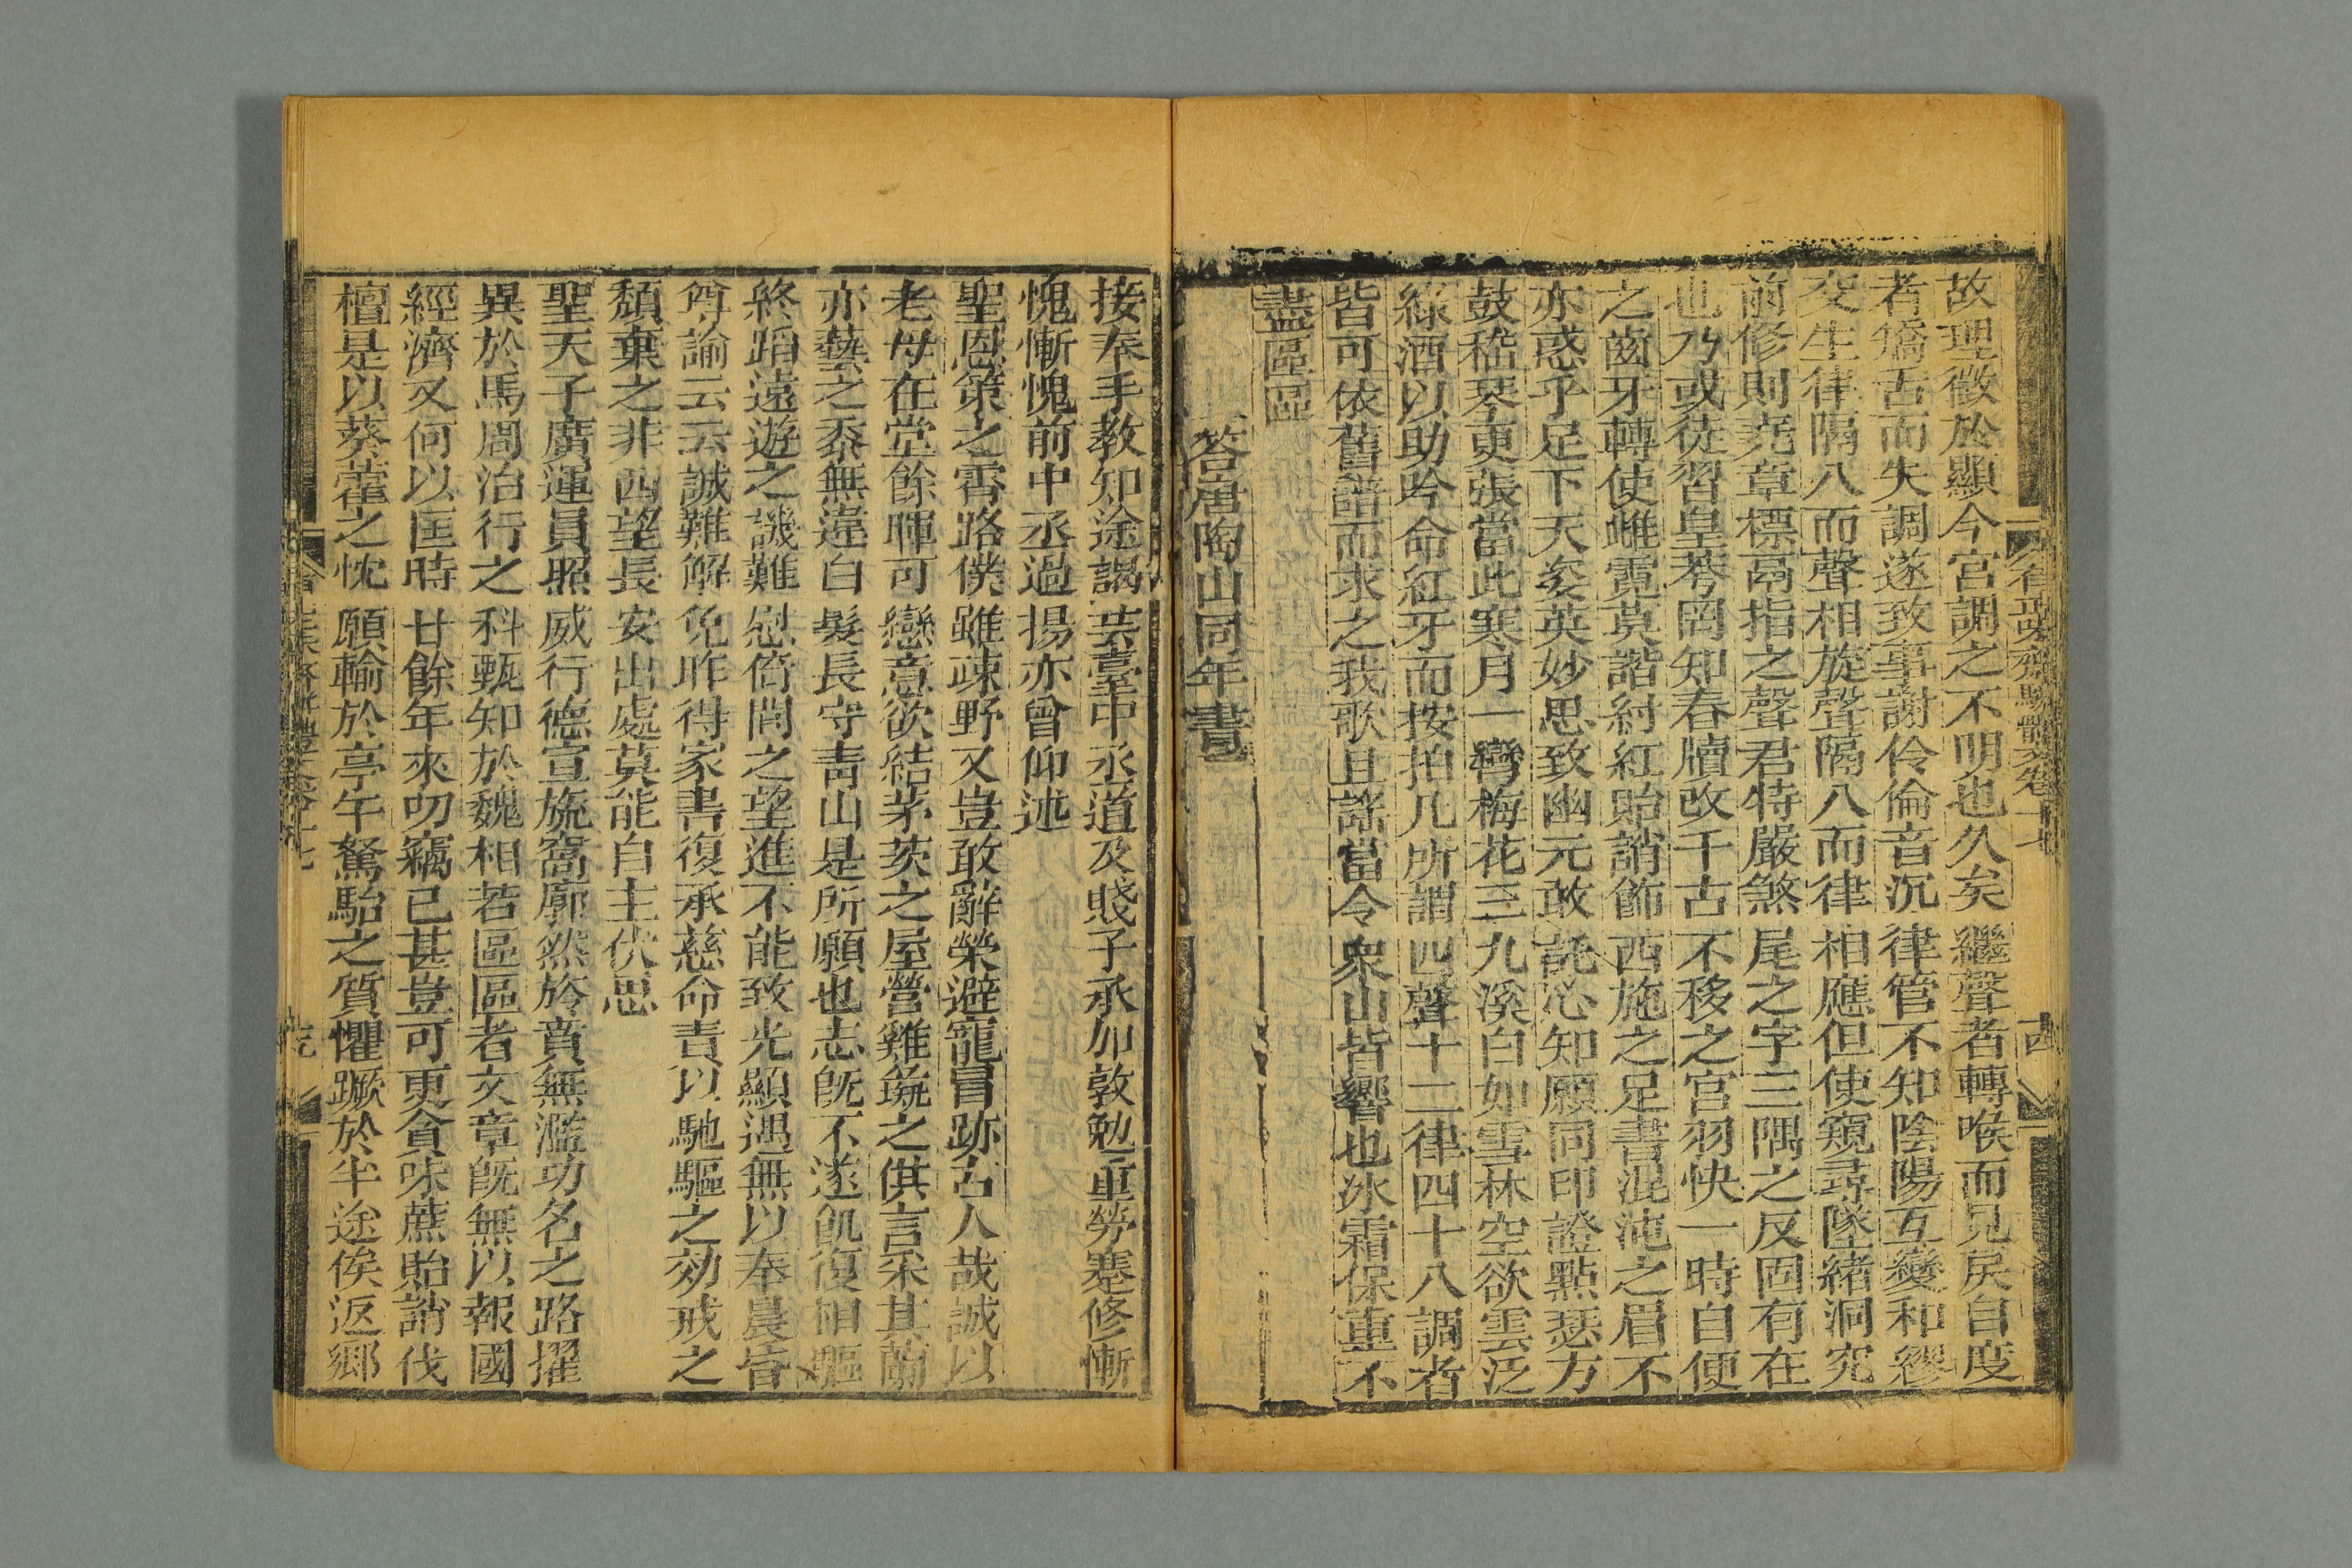 有正味齋駢體文卷十七
十四
故理微於顯今宮調之不明也久矣繼聲者轉喉而見戾自度
者矯舌而失調遂致事謝伶倫音沉律管不知陰陽互變和繆
交生律隔八而聲相旋聲隔八而律相應但使窺尋墜緒洞究
前修則堯章標鬲指之聲君特嚴煞尾之字三隅之反固有在
也乃或徒習皇荂罔知春牘改千古不移之宮羽快一時自便
之齒牙轉使雌霓莫諧紂紅貽誚飾西施之足書混沌之眉不
亦惑乎足下天姿英妙思致幽元敢託心知願同印證點瑟方
鼓嵇琴更張當此寒月一彎梅花三九溪白如雪林空欲雲泛
綠酒以助吟命紅牙而按拍凡所謂四聲十二律四十八調者
皆可依舊譜而求之我歌且謠當令衆山皆響也冰霜保重不
盡區區
答唐陶山同年書
接奉手教知途謁芸臺中丞道及賤子承加敦勉重勞蹇修慚
愧慚愧前中丞過揚亦曾仰述
聖恩策之霄路僕雖疎野又豈敢辭榮避寵冒跡古人哉誠以
老母在堂餘暉可戀意欲結茅茨之屋營雞毚之供言采其蘭
亦蓺之黍無違白髮長守青山是所願也志既不遂飢復相驅
終蹈遠遊之譏難慰倚閭之望進不能致光顯退無以奉晨昏
尊諭云云誠難解免昨得家書復承慈命責以馳驅之効戒之
頹棄之非西望長安出處莫能自主伏思
聖天子廣運員照威行德宣旒窩廓然於賁無濫功名之路擢
異於馬周治行之科甄知於魏相若區區者文章既無以報國
經濟又何以匡時廿餘年來叨竊已甚豈可更貪味蔗貽誚伐
檀是以葵藿之忱願輸於亭午駑駘之質懼蹶於半途俟返鄉